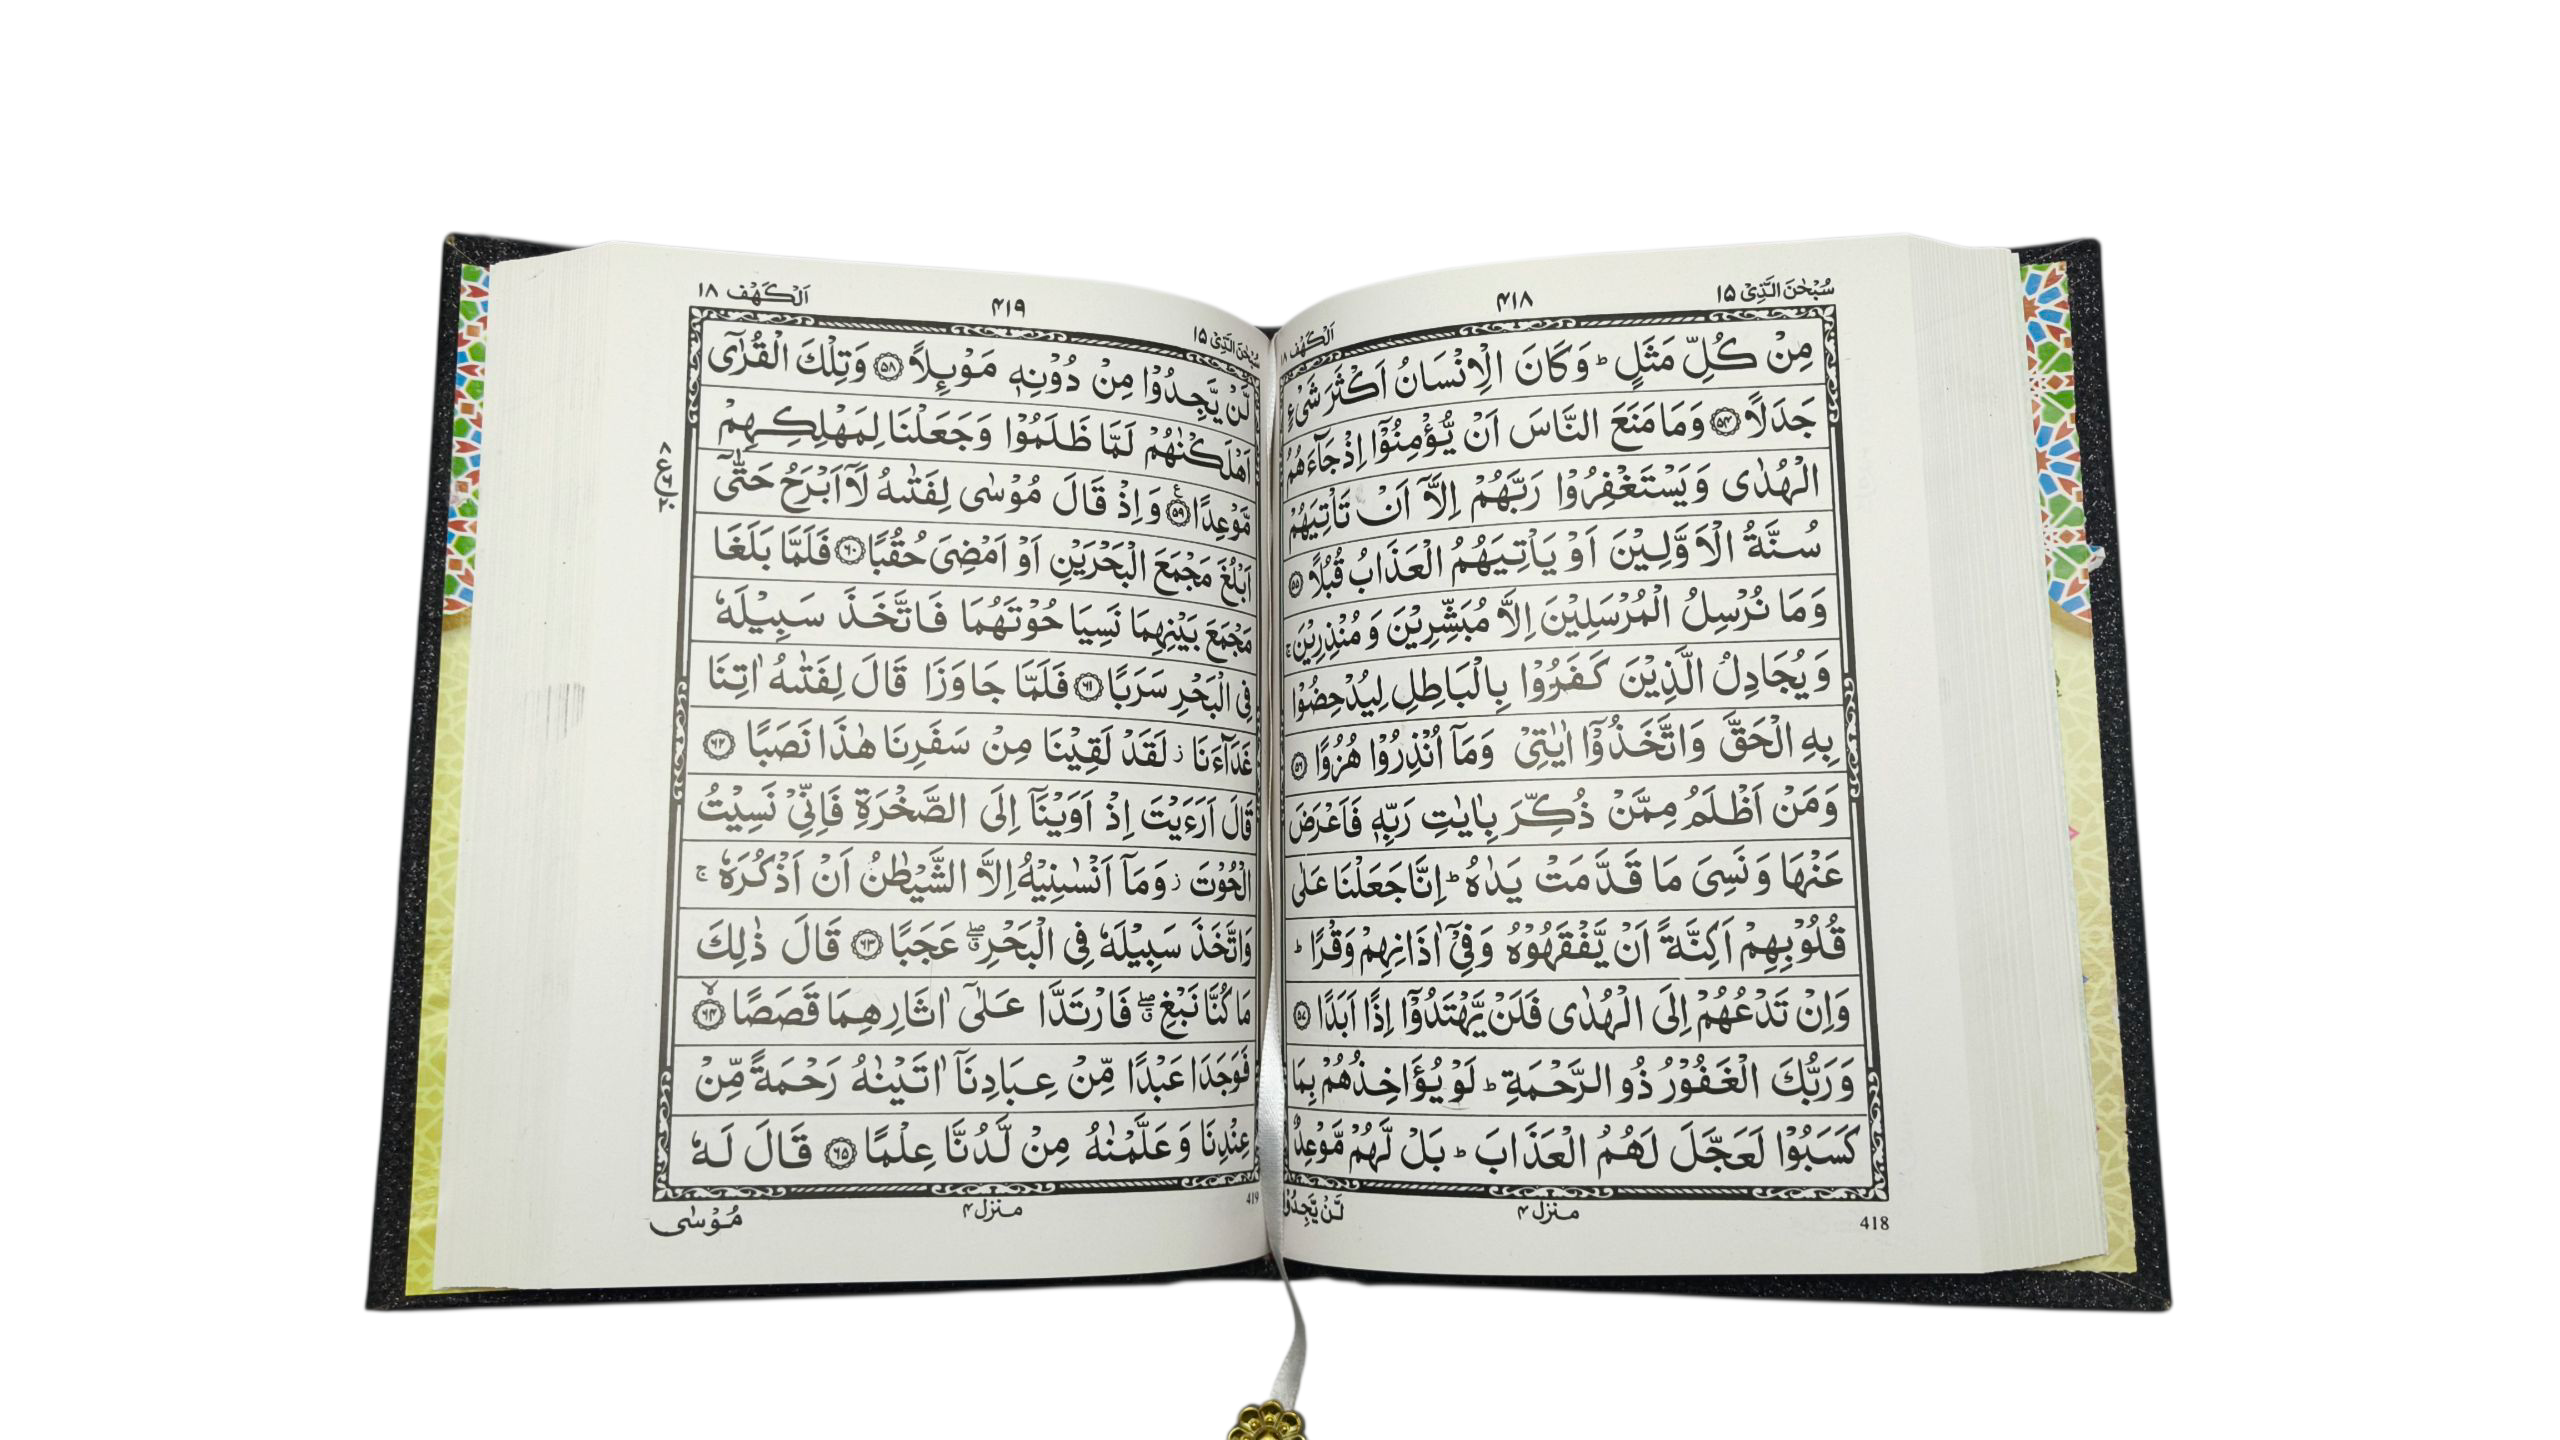 سُبْحٰنَ الَّذِیْۤ ۱۵
۴۱۸
اَلْکَهْف ۱۸
مِنْ كُلِّ مَثَلٍ ؕ وَكَانَ الْاِنْسَانُ اَكْثَرَ شَیْءٍ
جَدَلًا ۝۵۴ وَمَا مَنَعَ النَّاسَ اَنْ یُّؤْمِنُوْۤا اِذْ جَآءَهُمُ
الْهُدٰی وَیَسْتَغْفِرُوْا رَبَّهُمْ اِلَّاۤ اَنْ تَاْتِیَهُمْ
سُنَّةُ الْاَوَّلِیْنَ اَوْ یَاْتِیَهُمُ الْعَذَابُ قُبُلًا ۝۵۵
وَمَا نُرْسِلُ الْمُرْسَلِیْنَ اِلَّا مُبَشِّرِیْنَ وَمُنْذِرِیْنَ ۚ
وَیُجَادِلُ الَّذِیْنَ كَفَرُوْا بِالْبَاطِلِ لِیُدْحِضُوْا
بِهِ الْحَقَّ وَاتَّخَذُوْۤا اٰیٰتِیْ وَمَاۤ اُنْذِرُوْا هُزُوًا ۝۵۶
وَمَنْ اَظْلَمُ مِمَّنْ ذُكِّرَ بِاٰیٰتِ رَبِّهٖ فَاَعْرَضَ
عَنْهَا وَنَسِیَ مَا قَدَّمَتْ یَدٰهُ ؕ اِنَّا جَعَلْنَا عَلٰی
قُلُوْبِهِمْ اَكِنَّةً اَنْ یَّفْقَهُوْهُ وَفِیْۤ اٰذَانِهِمْ وَقْرًا ؕ
وَاِنْ تَدْعُهُمْ اِلَی الْهُدٰی فَلَنْ یَّهْتَدُوْۤا اِذًا اَبَدًا ۝۵۷
وَرَبُّكَ الْغَفُوْرُ ذُو الرَّحْمَةِ ؕ لَوْ یُؤَاخِذُهُمْ بِمَا
كَسَبُوْا لَعَجَّلَ لَهُمُ الْعَذَابَ ؕ بَلْ لَّهُمْ مَّوْعِدٌ
لَّنْ یَّجِدُوْا
منزل ۴
418
سُبْحٰنَ الَّذِیْۤ ۱۵
۴۱۹
اَلْکَهْف ۱۸
لَّنْ یَّجِدُوْا مِنْ دُوْنِهٖ مَوْىِٕلًا ۝۵۸ وَتِلْكَ الْقُرٰۤی
اَهْلَكْنٰهُمْ لَمَّا ظَلَمُوْا وَجَعَلْنَا لِمَهْلِكِهِمْ
مَّوْعِدًا ۝۵۹ وَاِذْ قَالَ مُوْسٰی لِفَتٰىهُ لَاۤ اَبْرَحُ حَتّٰۤی
اَبْلُغَ مَجْمَعَ الْبَحْرَیْنِ اَوْ اَمْضِیَ حُقُبًا ۝۶۰ فَلَمَّا بَلَغَا
مَجْمَعَ بَیْنِهِمَا نَسِیَا حُوْتَهُمَا فَاتَّخَذَ سَبِیْلَهٗ
فِی الْبَحْرِ سَرَبًا ۝۶۱ فَلَمَّا جَاوَزَا قَالَ لِفَتٰىهُ اٰتِنَا
غَدَآءَنَا ؗ لَقَدْ لَقِیْنَا مِنْ سَفَرِنَا هٰذَا نَصَبًا ۝۶۲
قَالَ اَرَءَیْتَ اِذْ اَوَیْنَاۤ اِلَی الصَّخْرَةِ فَاِنِّیْ نَسِیْتُ
الْحُوْتَ ؗ وَمَاۤ اَنْسٰىنِیْهُ اِلَّا الشَّیْطٰنُ اَنْ اَذْكُرَهٗ ۚ
وَاتَّخَذَ سَبِیْلَهٗ فِی الْبَحْرِ ۖۗ عَجَبًا ۝۶۳ قَالَ ذٰلِكَ
مَا كُنَّا نَبْغِ ۖۗ فَارْتَدَّا عَلٰۤی اٰثَارِهِمَا قَصَصًا ۝۶۴
فَوَجَدَا عَبْدًا مِّنْ عِبَادِنَاۤ اٰتَیْنٰهُ رَحْمَةً مِّنْ
عِنْدِنَا وَعَلَّمْنٰهُ مِنْ لَّدُنَّا عِلْمًا ۝۶۵ قَالَ لَهٗ
419
منزل ۴
مُوْسٰی